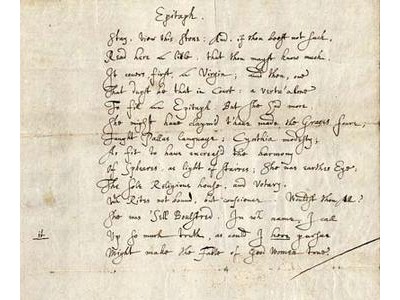 Epitaph.
Stay, view this Stone: And, if thou beest not such,
Read here a litle, that thou mayst know much.
It covers first, a Virgin; and then, one
That durst be that in Court: a vertu' alone
To fill an Epitaph. But she had more.
She might have claymd t'have made the Graces foure;
Taught Pallas language; Cynthia modesty;
As fit to have increasd the harmony
Of Spheares, as light of starres; She was earthes Eye,
The sole Religious house, and Votary,
Wth Rites not bound, but conscience. Wouldst thou All?
She was 'Sell Boulstred. In wch name, I call
it Up so much truth, as could I here pursue
Might make the Fable of Good Women true.